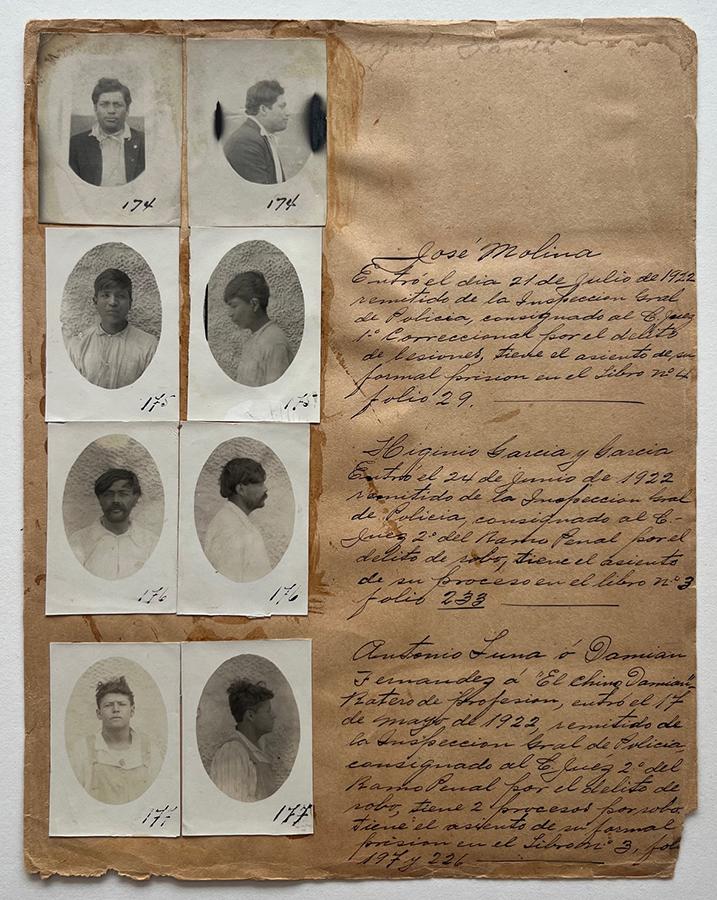 174
174
José Molina
Entró el dia 21 de Julio de 1922
remitido de la Inspeccion Gral
de Policia, consignado al C. Juez
1º Correccional por el delito
de lesiones, tiene el asiento de su
formal prision en el Libro nº 4
folio 29.
175
175
Higinio Garcia y Garcia
Entró el 24 de Junio de 1922
remitido de la Inspeccion Gral
de Policia, consignado al C.
Juez 2º del Ramo Penal por el
delito de robo, tiene el asiento
de su proceso en el libro nº 3
folio 233
176
176
Antonio Luna ó Damian
Fernandez á "El Chino Damian"
Ratero de profesion, entró el 17
de mayo de 1922, remitido de
la Inspeccion Gral de Policia
consignado al C. Juez 2º del
Ramo Penal por el delito de
robo, tiene 2 procesos por robo.
tiene el asiento de su formal
prision en el Libro nº 3, fol
197 y 226
177
177